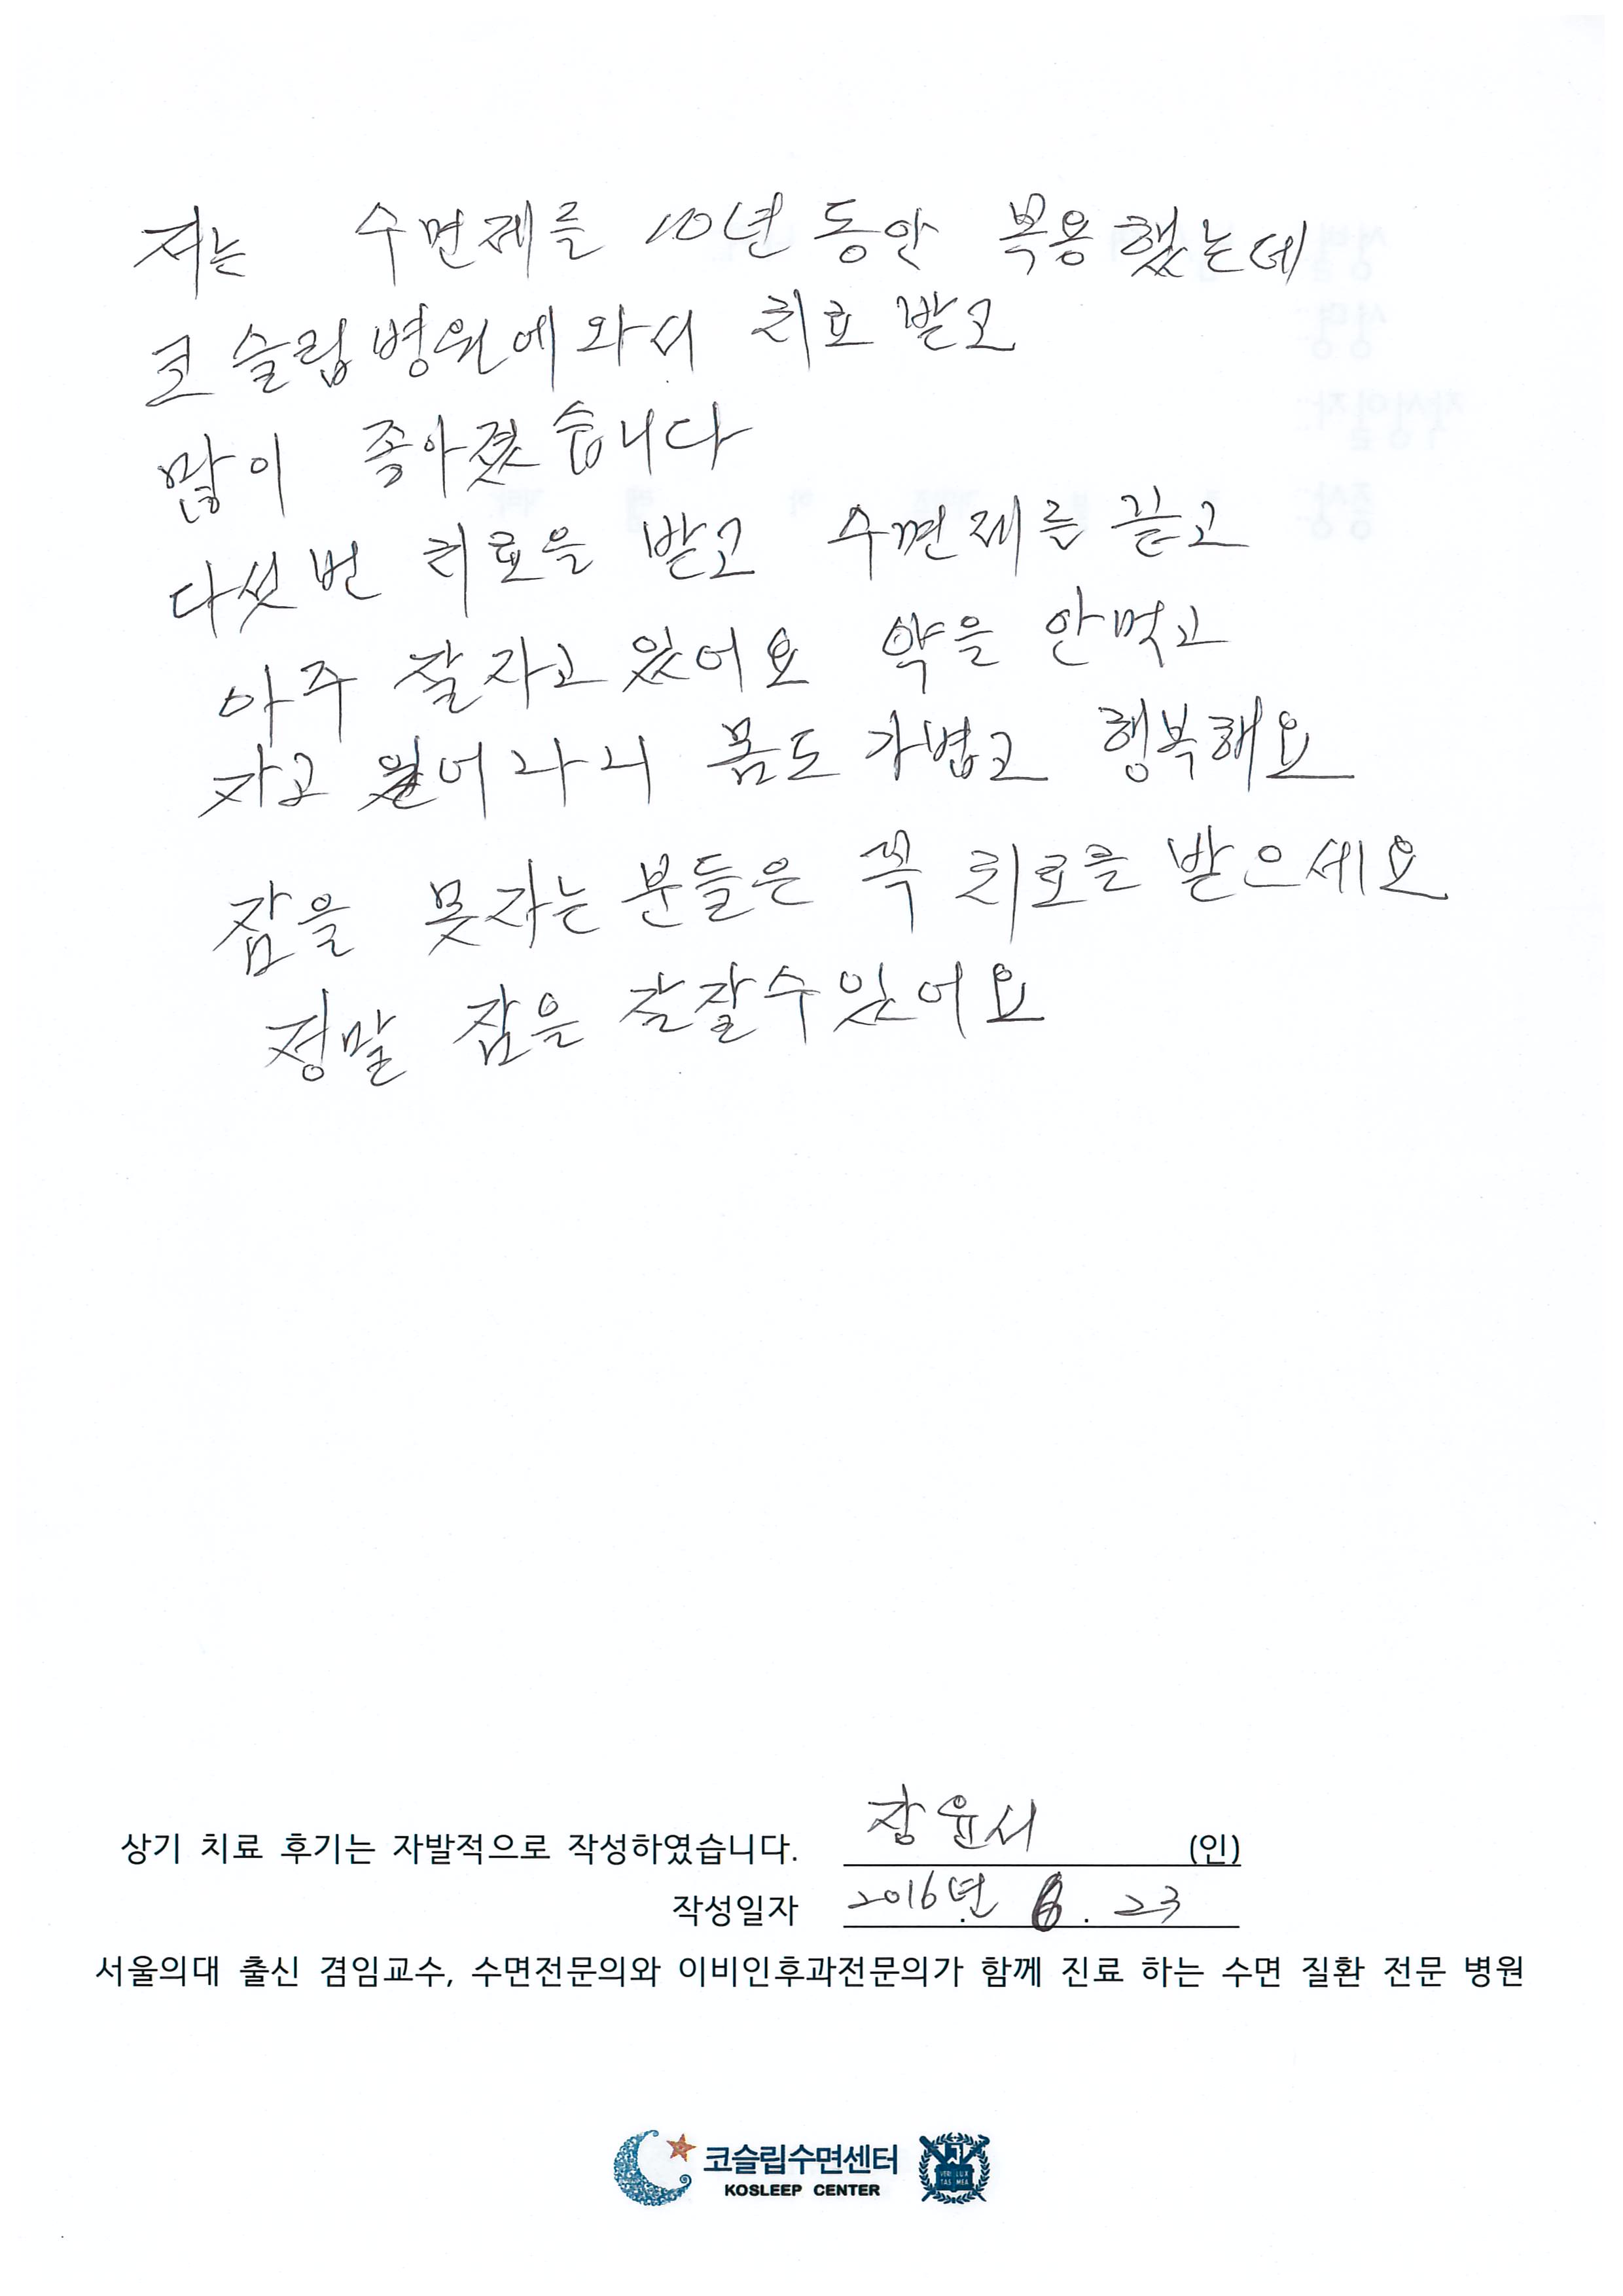 저는 수면제를 10년 동안 복용했는데
코슬립병원에 와서 치료 받고
많이 좋아졌습니다
다섯번 치료을 받고 수면제를 끊고
아주 잘자고 있어요 약을 안먹고
자고 일어나니 몸도 가볍고 행복해요
잠을 못자는 분들은 꼭 치료를 받으세요
정말 잠을 잘잘수있어요
상기 치료 후기는 자발적으로 작성하였습니다. 장윤서 (인)
작성일자 2016년 6. 23
서울의대 출신 겸임교수, 수면전문의와 이비인후과전문의가 함께 진료 하는 수면 질환 전문 병원
코슬립수면센터
KOSLEEP CENTER
VERI LUX
TAS MEA